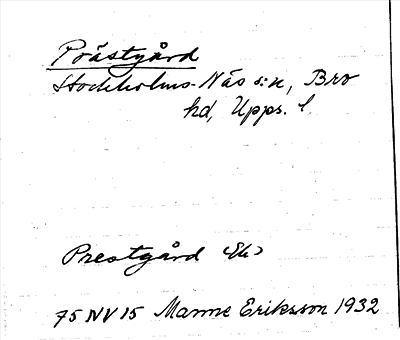 Prästgård
Stockholms-Näs s:n, Bro
hd, Upps. l.
Prestgård (Ek)
75 NV 15 Manne Eriksson 1932